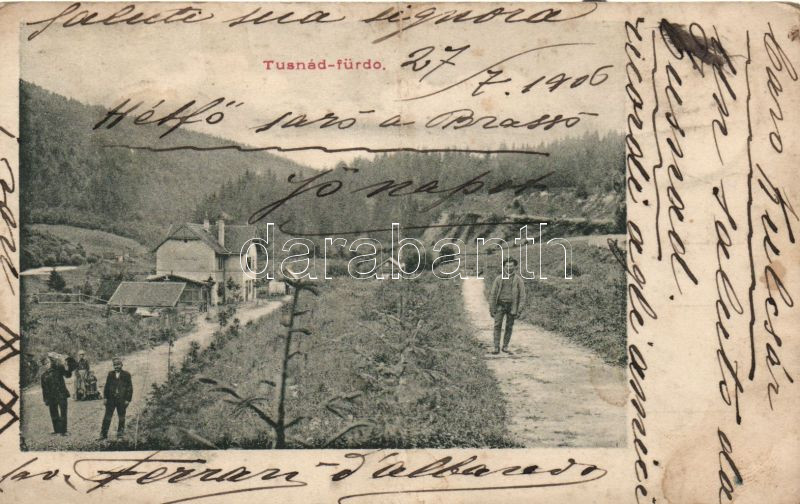 Salute sua signora
Tusnád-fürdo.
27/7. 1906
Hétfő saró a Brassó
Jó napot
darabanth
Caro Kulcsár
Un saluto da
Tusnad.
ricordi agli amici
Cav. Ferrari d'